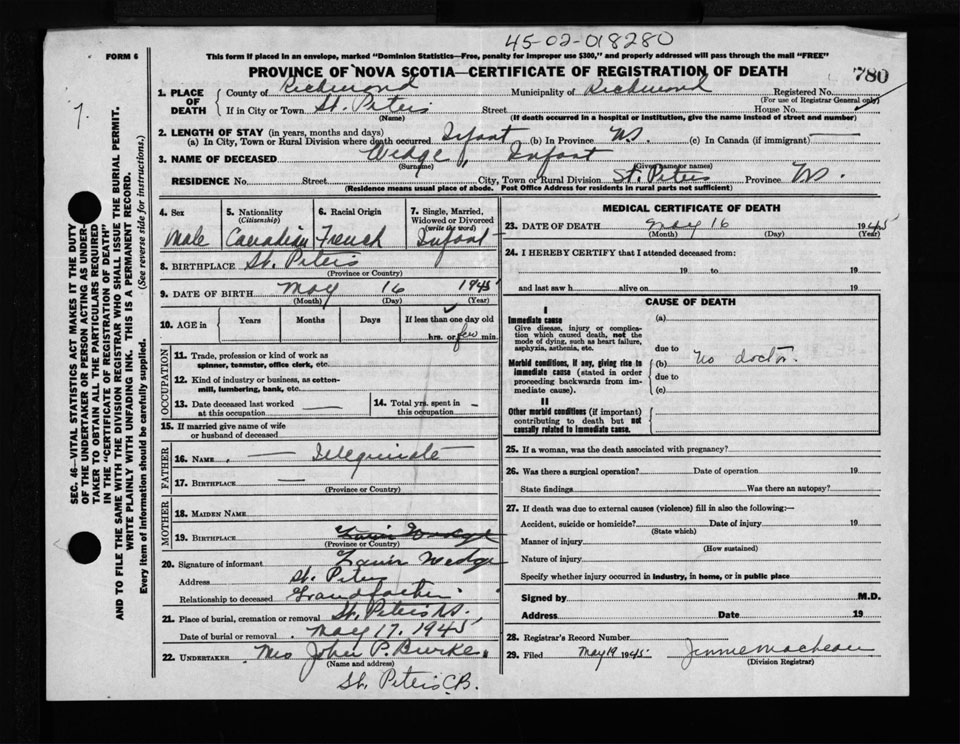 45-02-018280
FORM 6
This form if placed in an envelope, marked "Dominion Statistics—Free, penalty for improper use $300," and properly addressed will pass through the mail "FREE"
PROVINCE OF NOVA SCOTIA—CERTIFICATE OF REGISTRATION OF DEATH
780
1. PLACE OF DEATH
County of Richmond Municipality of Richmond Registered No.
(For use of Registrar General only)
If in City or Town St. Peters Street House No.
(Name) (If death occurred in a hospital or institution, give the name instead of street and number)
2. LENGTH OF STAY (in years, months and days)
(a) In City, Town or Rural Division where death occurred Infant (b) in Province NS. (c) In Canada (if immigrant)
3. NAME OF DECEASED Wedge, Infant
(Surname) (Given name or names)
RESIDENCE No. Street City, Town or Rural Division St. Peters Province NS.
(Residence means usual place of abode. Post Office Address for residents in rural parts not sufficient)
4. Sex
Male
5. Nationality
(Citizenship)
Canadian
6. Racial Origin
French
7. Single, Married, Widowed or Divorced
(write the word)
Infant
8. BIRTHPLACE St. Peters
(Province or Country)
9. DATE OF BIRTH May 16 1945
(Month) (Day) (Year)
10. AGE in Years Months Days If less than one day old
hrs. or few min.
OCCUPATION
11. Trade, profession or kind of work as
spinner, teamster, office clerk, etc.
12. Kind of industry or business, as cotton-
mill, lumbering, bank, etc.
13. Date deceased last worked
at this occupation
14. Total yrs. spent in
this occupation
15. If married give name of wife
or husband of deceased
FATHER
16. NAME
17. BIRTHPLACE
(Province or Country)
MOTHER
18. MAIDEN NAME
19. BIRTHPLACE
(Province or Country)
20. Signature of informant Wedge
Address St. Peters
Relationship to deceased Grandfather
21. Place of burial, cremation or removal St. Peters NS.
Date of burial or removal May 17, 1945
22. UNDERTAKER Mrs John P. Burke.
(Name and address)
St. Peters C.B.
MEDICAL CERTIFICATE OF DEATH
23. DATE OF DEATH May 16 1945
(Month) (Day) (Year)
24. I HEREBY CERTIFY that I attended deceased from:
19 to 19
and last saw h alive on 19
CAUSE OF DEATH
I
Immediate cause (a)
Give disease, injury or complica-
tion which caused death, not the
mode of dying, such as heart failure,
asphyxia, asthenia, etc.
due to
Morbid conditions, if any, giving rise to
immediate cause (stated in order
proceeding backwards from im-
mediate cause).
(b) No doctor.
due to
(c)
II
Other morbid conditions (if important)
contributing to death but not
causally related to immediate cause.
25. If a woman, was the death associated with pregnancy?
26. Was there a surgical operation? Date of operation 19
State findings Was there an autopsy?
27. If death was due to external causes (violence) fill in also the following:—
Accident, suicide or homicide? Date of injury 19
(State which)
Manner of injury
(How sustained)
Nature of injury
Specify whether injury occurred in industry, in home, or in public place
Signed by M.D.
Address Date 19
28. Registrar's Record Number
29. Filed May 19 1945 Jennie MacLean
(Division Registrar)
SEC. 46—VITAL STATISTICS ACT MAKES IT THE DUTY
OF THE UNDERTAKER OR PERSON ACTING AS UNDER-
TAKER TO OBTAIN ALL THE PARTICULARS REQUIRED
IN THE "CERTIFICATE OF REGISTRATION OF DEATH"
AND TO FILE THE SAME WITH THE DIVISION REGISTRAR WHO SHALL ISSUE THE BURIAL PERMIT.
WRITE PLAINLY WITH UNFADING INK. THIS IS A PERMANENT RECORD.
Every item of information should be carefully supplied. (See reverse side for instructions.)